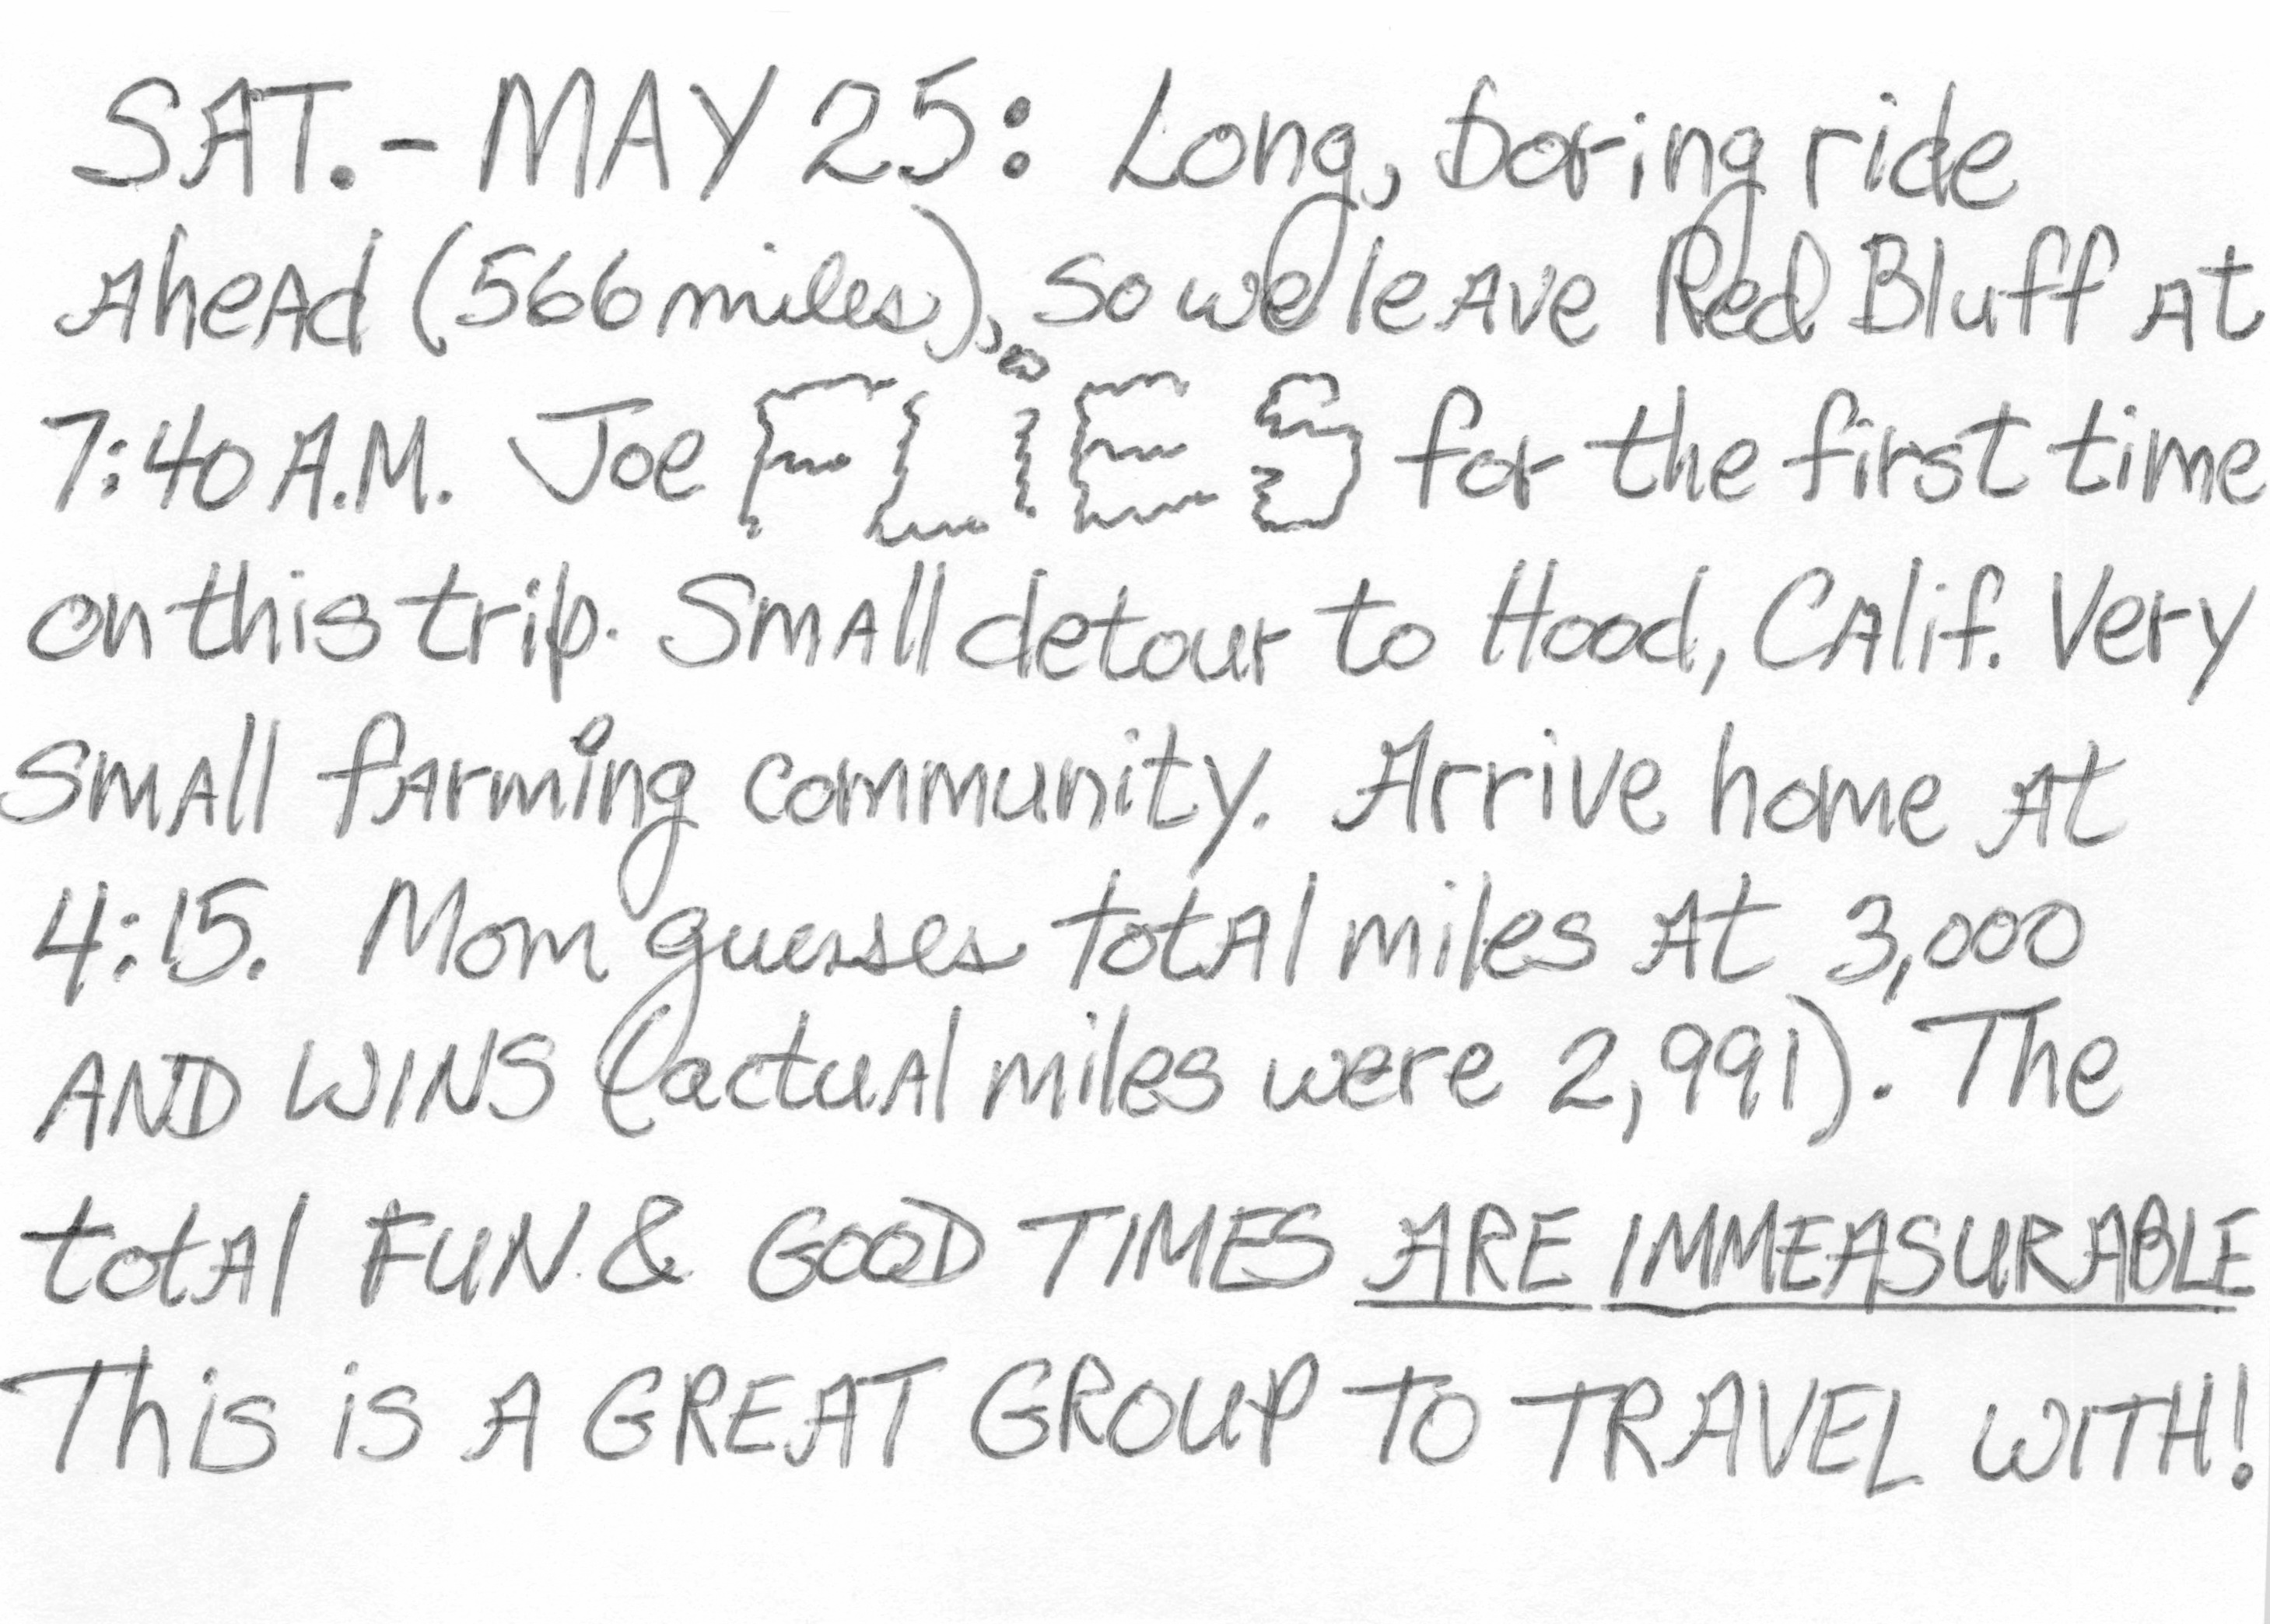 SAT. - MAY 25: Long, boring ride
Ahead (566 miles), so we leave Red Bluff At
7:40 A.M. Joe FLIES for the first time
on this trip. Small detour to Hood, Calif. Very
Small farming community. Arrive home At
4:15. Mom guesses total miles At 3,000
AND WINS (actual miles were 2,991). The
total FUN & GOOD TIMES ARE IMMEASURABLE
This is A GREAT GROUP TO TRAVEL WITH!